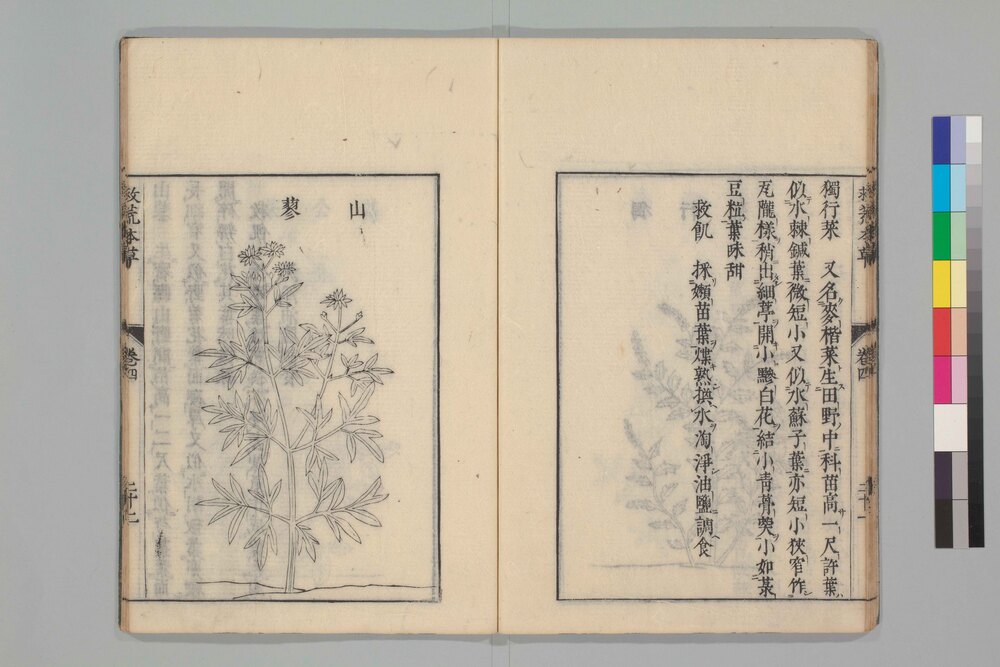 獨行菜　又名麥楷菜生田野中科苗高一尺許葉
似水棘鍼葉微短小又似水蘇子葉亦短小狹窄作
瓦隴樣稍出細葶開小黲白花結小青蓇葖小如菉
豆粒葉味甜
救飢　採嫩苗葉煠熟換水淘淨油鹽調食
救荒本草
卷四
二十一
山
蓼
救荒本草
卷四
二十二